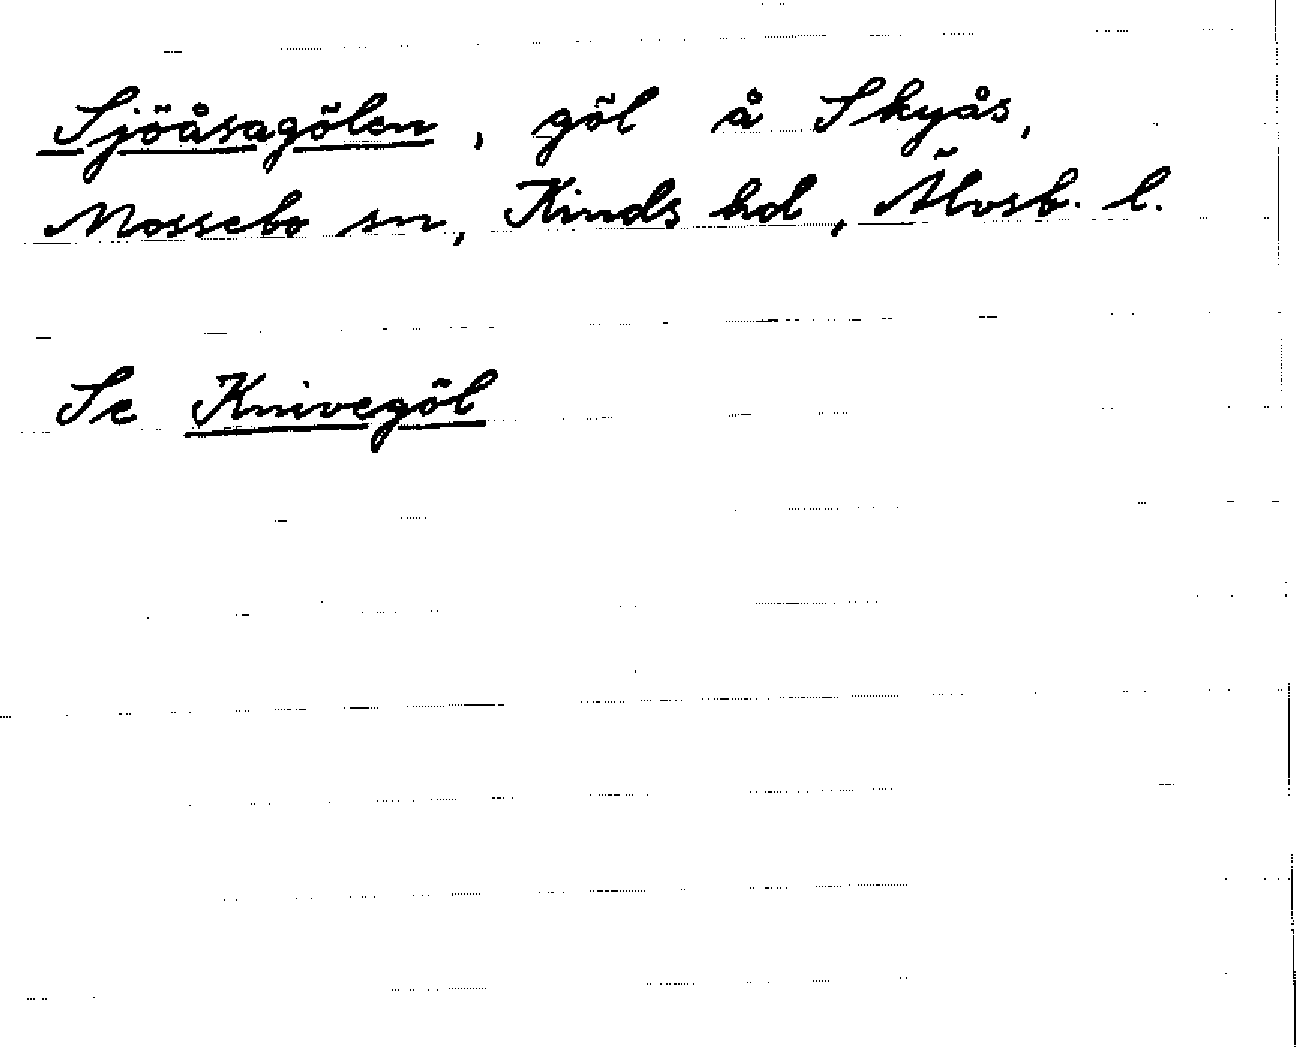 Sjöåsagölen, göl å Skyås,
Mossebo sn, Kinds hd, Älvsb. l.
Se Knivegöl